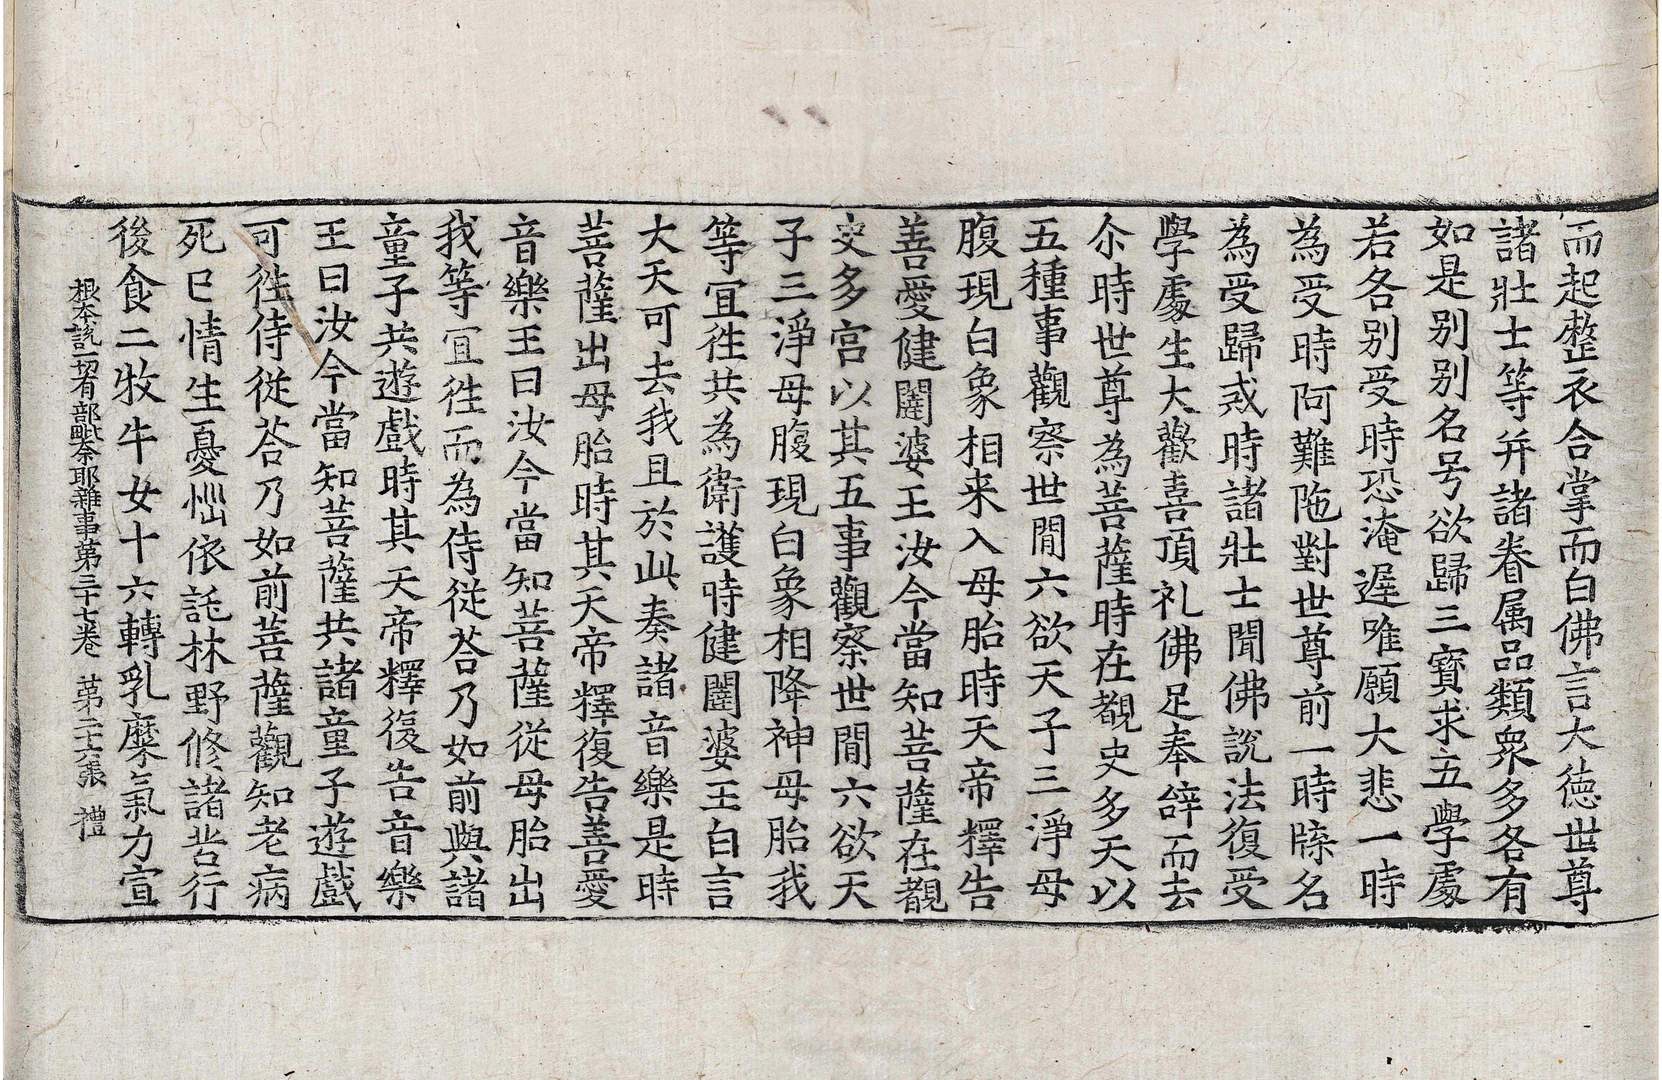 而起整衣合掌而白佛言大德世尊
諸壯士等并諸眷属品類衆多各有
如是别别名号欲歸三寶求五學處
若各别受時恐淹遅唯願大悲一時
為受時阿難陁對世尊前一時牒名
為受歸戒時諸壯士聞佛說法復受
學處生大歡喜頂礼佛足奉辝而去
尒時世尊為菩薩時在覩史多天以
五種事觀察世間六欲天子三淨母
腹現白象相来入母胎時天帝釋告
善愛健闥婆王汝今當知菩薩在覩
史多宫以其五事觀察世間六欲天
子三淨母腹現白象相降神母胎我
等冝徃共為衛護時健闥婆王白言
大天可去我且於此奏諸音樂是時
菩薩出母胎時其天帝釋復告善愛
音樂王曰汝今當知菩薩從母胎出
我等冝徃而為侍從荅乃如前與諸
童子共遊戲時其天帝釋復告音樂
王曰汝今當知菩薩共諸童子遊戲
可徃侍從荅乃如前菩薩觀知老病
死已情生憂惱依託林野修諸苦行
後食二牧牛女十六轉乳糜氣力宣
根本說一切有部毗奈耶雜事第三十七卷 第二十六張 禮